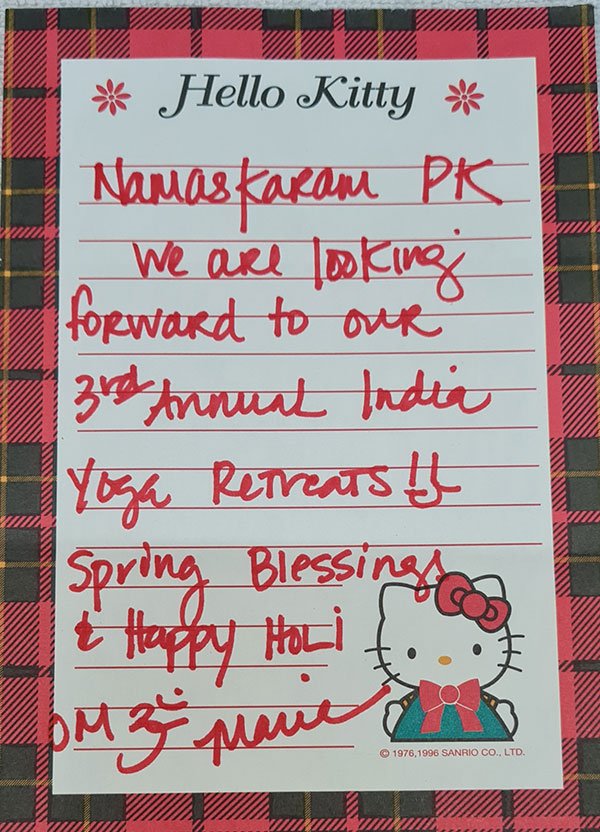 Hello Kitty
Namaskaram PK
We are looking
forward to our
3rd Annual India
Yoga Retreats!!
Spring Blessings
& Happy Holi
OM ॐ Marie
© 1976, 1996 SANRIO CO., LTD.